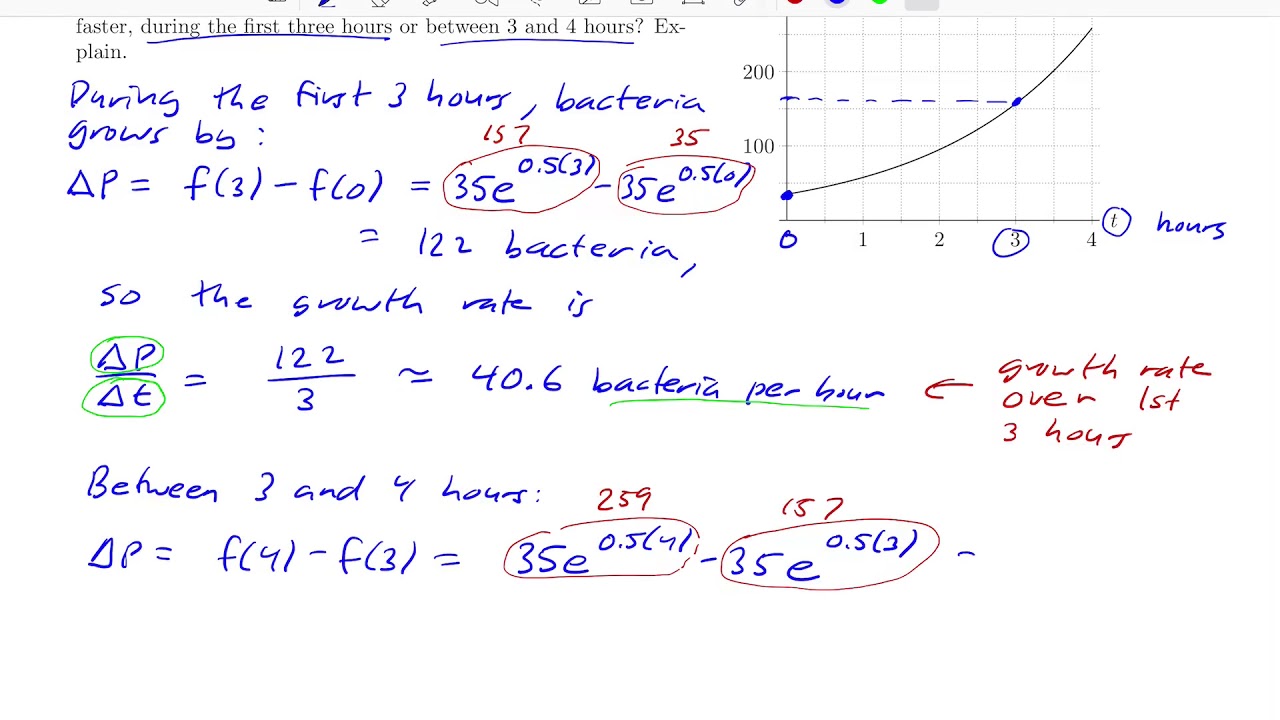 faster, during the first three hours or between 3 and 4 hours? Ex-
plain.
During the first 3 hours, bacteria
grows by:
157 35
ΔP = f(3) - f(0) = 35e^0.5(3) - 35e^0.5(0)
= 122 bacteria,
so the growth rate is
ΔP/Δt = 122/3 ≈ 40.6 bacteria per hour ← growth rate
over 1st
3 hours
Between 3 and 4 hours:
259 157
ΔP = f(4) - f(3) = 35e^0.5(4) - 35e^0.5(3) =
200
100
0 1 2 3 4 t hours